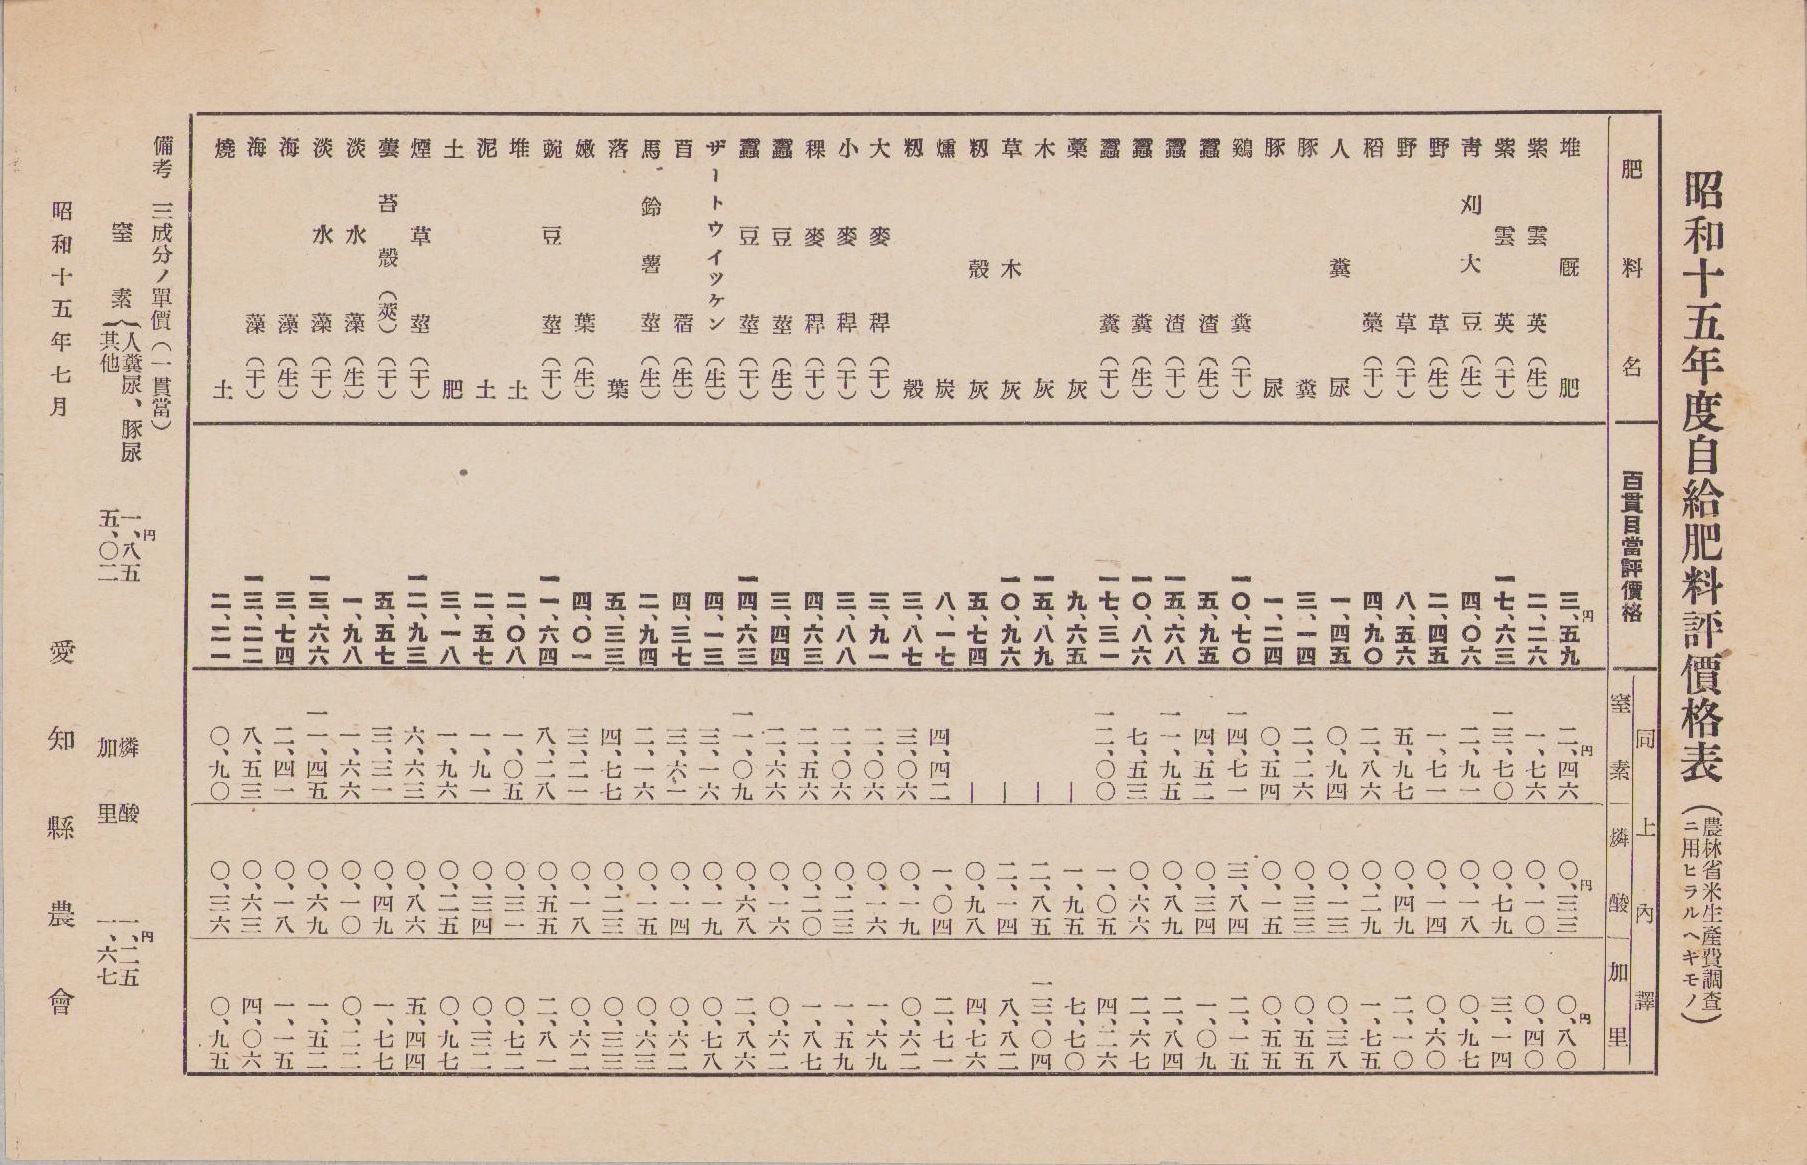 昭和十五年度自給肥料評價格表（農林省米生產費調查ニ用ヒラルヘキモノ）
肥料名 百貫目當評價格 同上內譯 窒素 燐酸 加里
堆廐肥 三、五九円 二、四六円 〇、三三円 〇、八〇円
紫雲英（生） 二、二六 一、七六 〇、一〇 〇、四〇
紫雲英（干） 一七、六三 一三、七〇 〇、七九 三、一四
靑刈大豆（生） 四、〇六 二、九一 〇、一八 〇、九七
野草（生） 二、四五 一、七一 〇、一四 〇、六〇
野草（干） 八、五六 五、九七 〇、四九 二、一〇
稻藁（干） 四、九〇 二、八六 〇、二九 一、七五
人糞尿 一、四五 〇、九四 〇、一三 〇、三八
豚糞 三、一四 二、二六 〇、三三 〇、五五
豚尿 一、二四 〇、五四 〇、一五 〇、五五
鷄糞（干） 一〇、七〇 一四、七一 三、八四 二、一五
蠶渣（生） 五、九五 四、五二 〇、三四 一、〇九
蠶渣（干） 一五、六八 一一、九五 〇、八九 二、八四
蠶糞（生） 一〇、八六 七、五三 〇、六六 二、六七
蠶糞（干） 一七、三一 一二、〇〇 一、〇五 四、二六
藁灰 九、六五 ｜ 一、九五 七、七〇
木灰 一五、八九 ｜ 二、八五 一三、〇四
草木灰 一〇、九六 ｜ 二、一四 八、八二
籾殼灰 五、七四 ｜ 〇、九八 四、七六
燻炭 八、一七 四、四二 一、〇四 二、七一
籾殼 三、八七 三、〇六 〇、一九 〇、六二
大麥稈（干） 三、九一 二、〇六 〇、一六 一、六九
小麥稈（干） 三、八八 二、〇六 〇、二三 一、五九
稞麥稈（干） 四、六三 二、五六 〇、二〇 一、八七
蠶豆莖（生） 三、四四 二、六六 〇、一六 〇、六二
蠶豆莖（干） 一四、六三 一一、〇九 〇、六八 二、八六
ザートウイツケン（生） 四、一三 三、一六 〇、一九 〇、七八
苜蓿（生） 四、三七 三、六一 〇、一四 〇、六二
馬鈴薯莖（生） 二、九四 二、一六 〇、一五 〇、六三
落葉 五、三三 四、七七 〇、二三 〇、三三
嫩葉（生） 四、〇一 三、二一 〇、一八 〇、六二
豌豆莖（干） 一一、六四 八、二八 〇、五五 二、八一
堆土 二、〇八 一、〇五 〇、三一 〇、七二
泥土 二、五七 一、九一 〇、三四 〇、三二
土肥 三、一八 一、九六 〇、二五 〇、九七
煙草莖（干） 一二、九三 六、六三 〇、八六 五、四四
蕓苔殼（莢）（干） 五、五七 三、三一 〇、四九 一、七七
淡水藻（生） 一、九八 一、六六 〇、一〇 〇、二二
淡水藻（干） 一三、六六 一一、四五 〇、六九 一、五二
海藻（生） 三、七四 二、四一 〇、一八 一、一五
海藻（干） 一三、二二 八、五三 〇、六三 四、〇六
燒土 二、二一 〇、九〇 〇、三六 〇、九五
備考 三成分ノ單價（一貫當）
窒素｛人糞尿、豚尿 一、八五円 燐酸 一、二五円
其他 五、〇二 加里 一、六七
昭和十五年七月 愛知縣農會